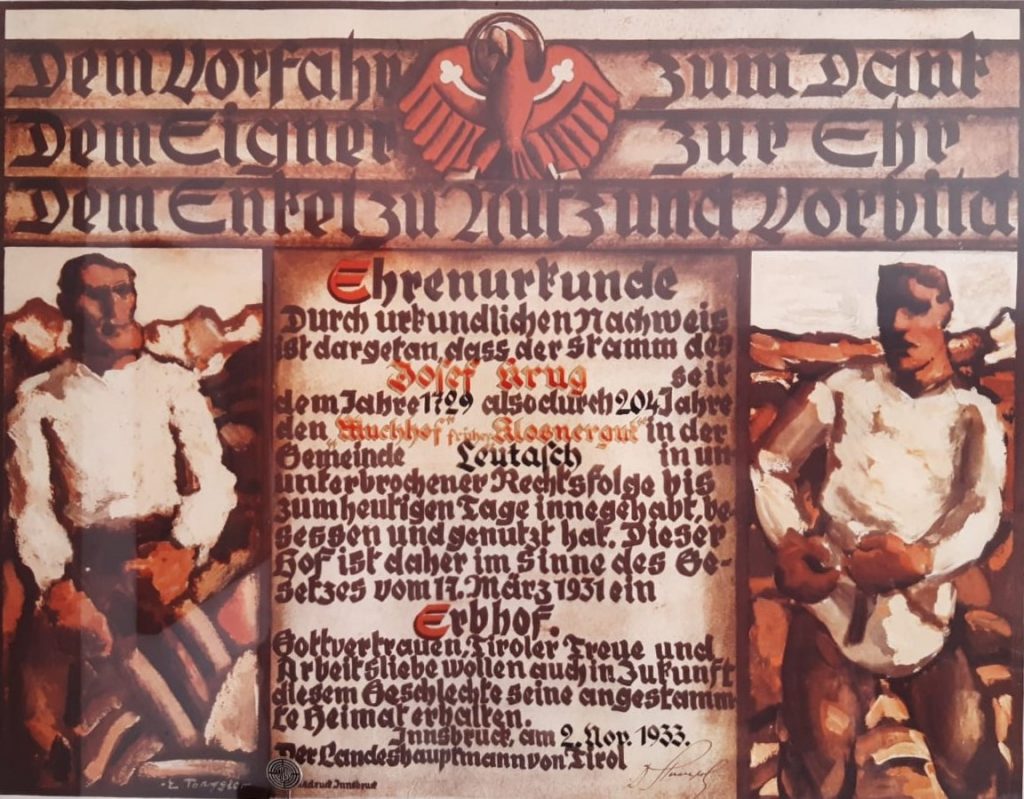 Dem Vorfahr zum Dank
Dem Eigner zur Ehr
Dem Enkel zu Nutz und Vorbild
Ehrenurkunde
Durch urkundlichen Nachweis
ist dargetan, dass der Stamm des
Josef Krug seit
dem Jahre 1729 also durch 204 Jahre
den "Muchhof" früher "Klosnergut" in der
Gemeinde Leutasch in un
unterbrochener Rechtsfolge bis
zum heutigen Tage innegehabt, be-
sessen und genutzt hat. Dieser
Hof ist daher im Sinne des Ge-
setzes vom 17. März 1931 ein
Erbhof.
Gottvertrauen, Tiroler Treue und
Arbeitsliebe wollen auch in Zukunft
diesem Geschlechte seine angestamm-
te Heimat erhalten.
Innsbruck, am 2. Nov. 1933.
Der Landeshauptmann von Tirol
Innsbruck